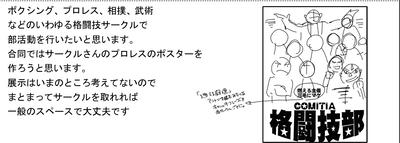 ボクシング、プロレス、相撲、武術
などのいわゆる格闘技サークルで
部活動を行いたいと思います。
合同ではサークルさんのプロレスのポスターを
作ろうと思います。
展示はいまのところ考えてないので
まとまってサークルを取れれば
一般のスペースで大丈夫です
燃える主義
COMITIA
格闘技部